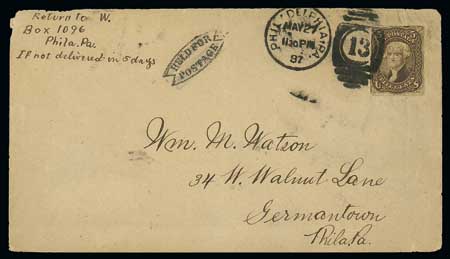 Return to W.
Box 1096
Phila. Pa.
If not delivered in 5 days
HELD FOR
POSTAGE
PHILADELPHIA, PA.
MAY 27
1130 PM
97
13
5 5
Wm. M. Watson
34 W. Walnut Lane
Germantown
Phila. Pa.